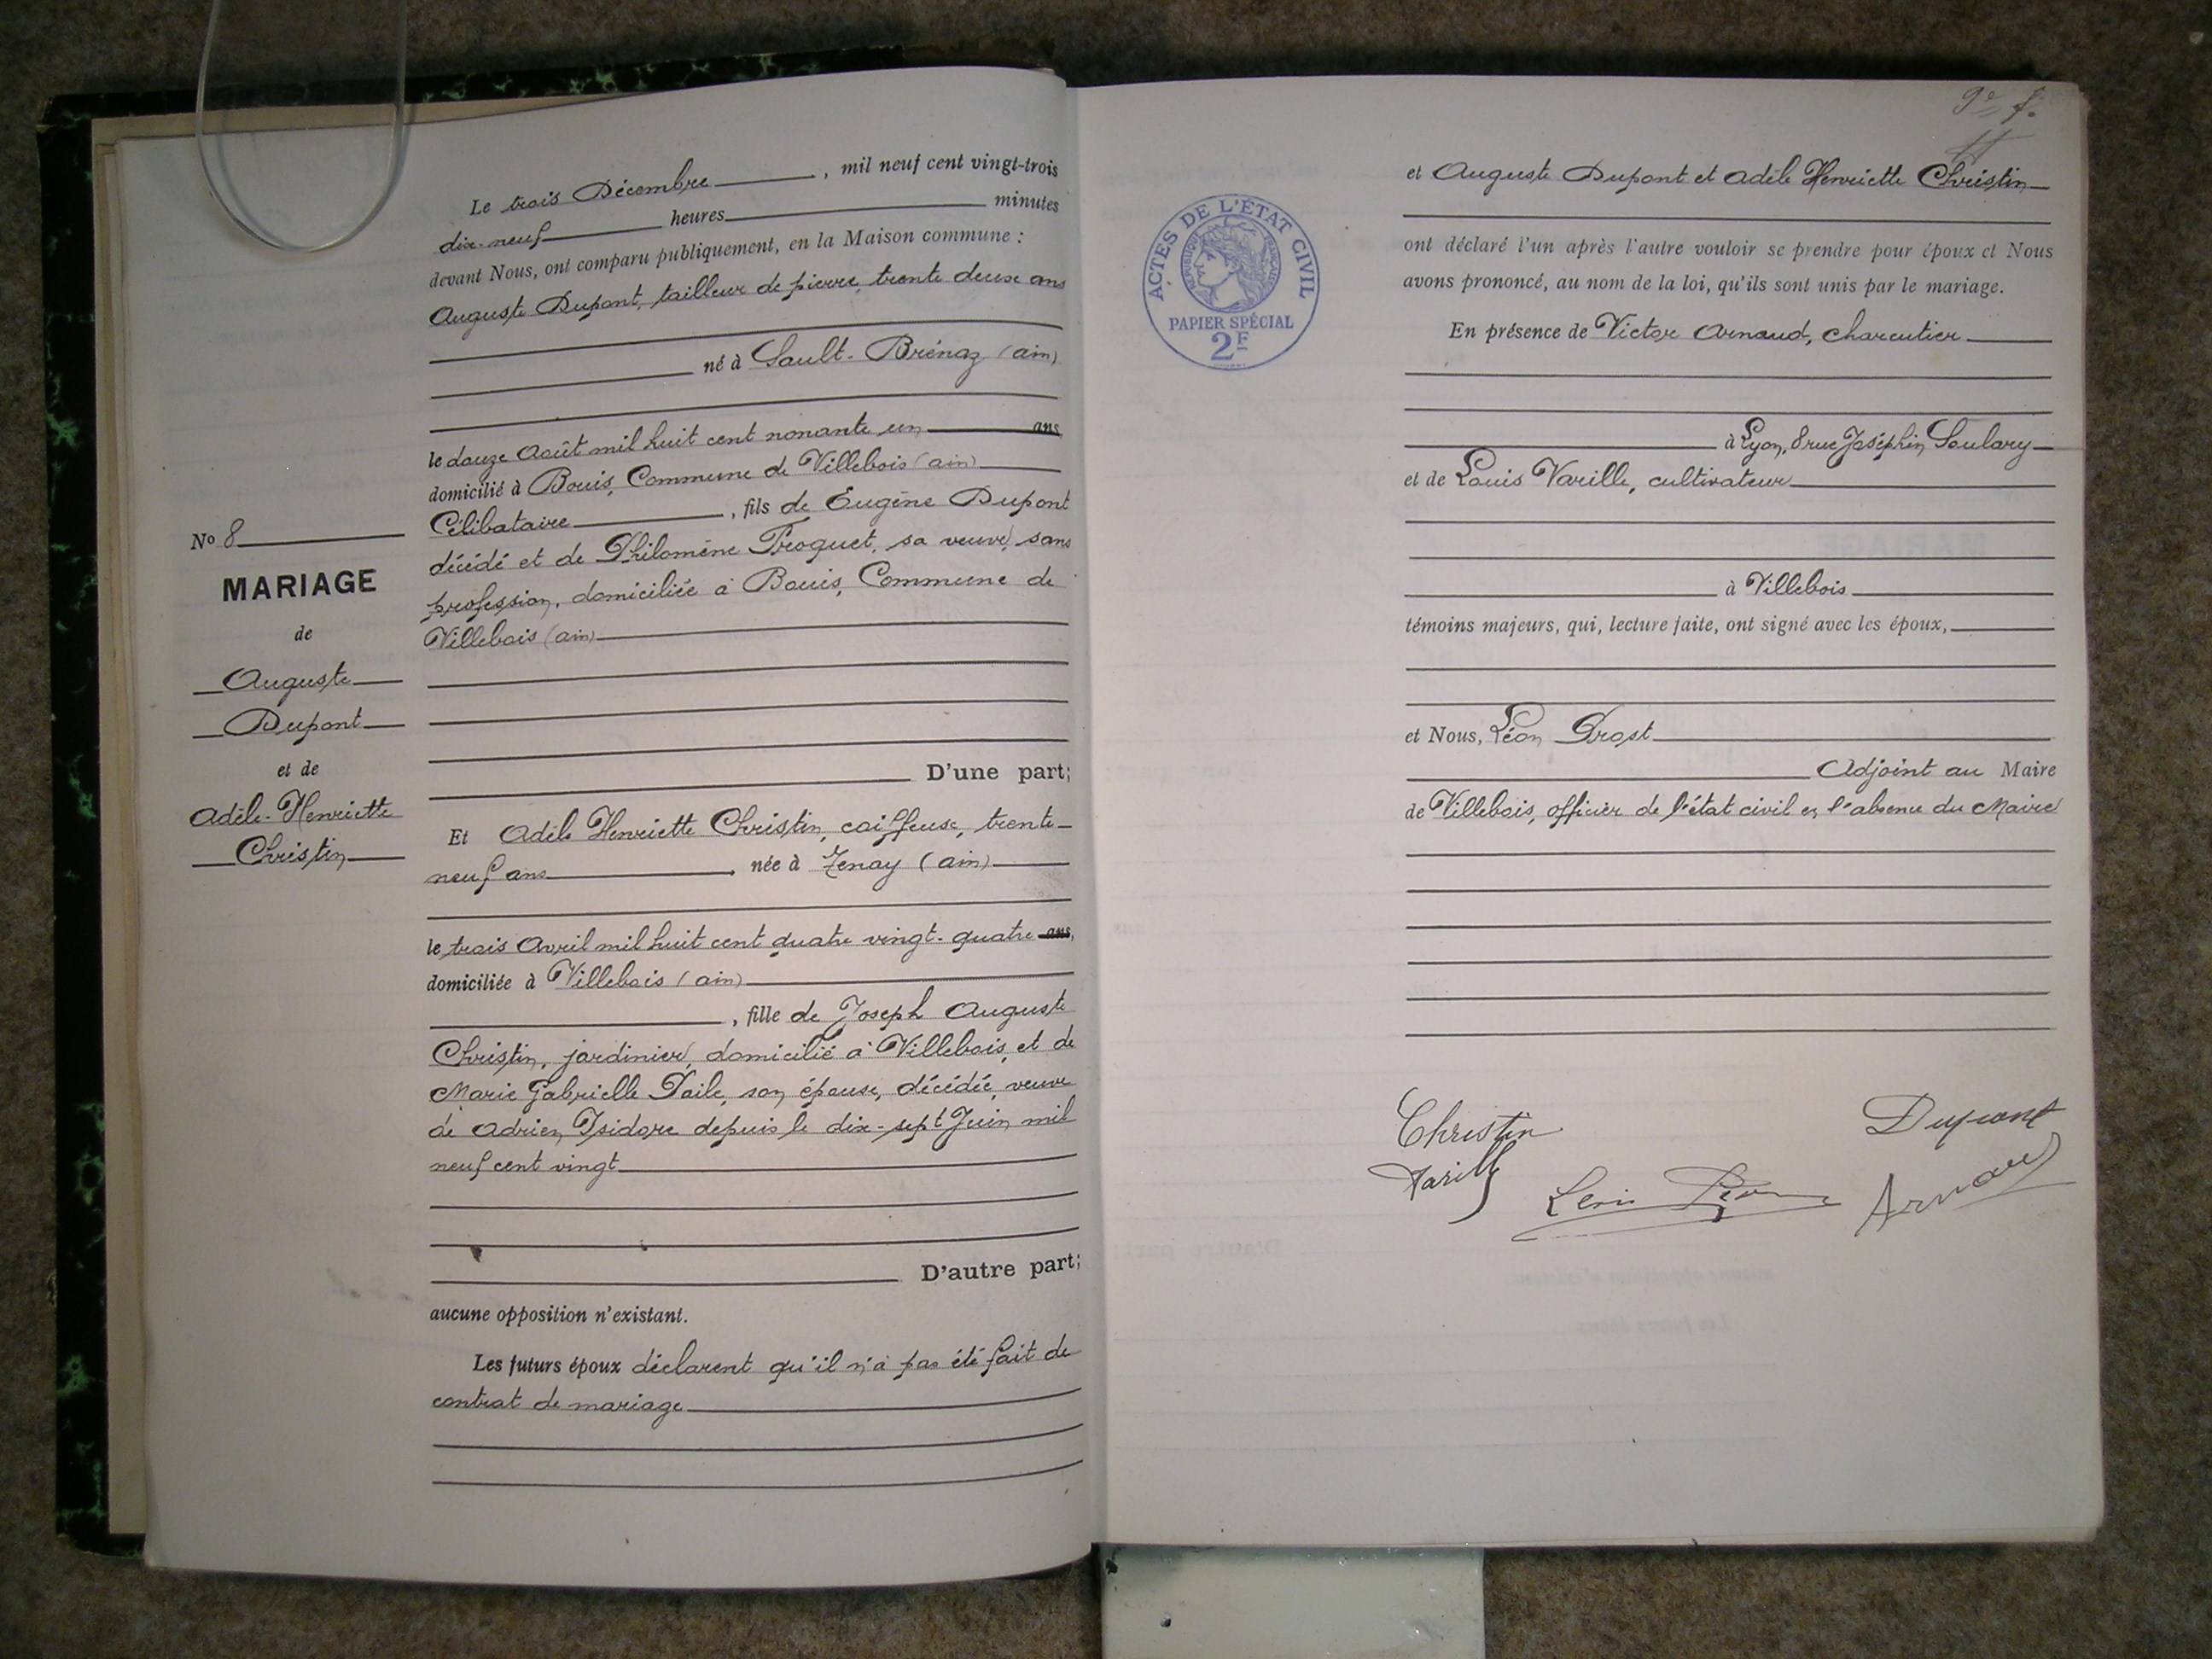 Le trois Décembre, mil neuf cent vingt-trois
dix-neuf heures minutes
devant Nous, ont comparu publiquement, en la Maison commune :
Auguste Dupont, tailleur de pierre, trente deux ans
né à Sault-Brénaz (ain)
le douze Août mil huit cent nonante un ans,
domicilié à Bouis, Commune de Villebois (ain)
Célibataire, fils de Eugène Dupont
décédé et de Philomène Troquet, sa veuve, sans
profession, domiciliée à Bouis, Commune de
Villebois (ain)
D'une part;
No 8
MARIAGE
de
Auguste
Dupont
et de
Adèle-Henriette
Christin
Et Adèle Henriette Christin, coiffeuse, trente-
neuf ans, née à Tenay (ain)
le trois Avril mil huit cent quatre vingt-quatre ans,
domiciliée à Villebois (ain)
, fille de Joseph Auguste
Christin, jardinier, domicilié à Villebois, et de
Marie Gabrielle son épouse, décédée, veuve
de Adrien Isidore depuis le dix-sept Juin mil
neuf cent vingt
D'autre part;
aucune opposition n'existant.
Les futurs époux déclarent qu'il n'a pas été fait de
contrat de mariage
et Auguste Dupont et Adèle Henriette Christin
ACTES DE L'ÉTAT CIVIL
RÉPUBLIQUE FRANÇAISE
PAPIER SPÉCIAL
2F
ont déclaré l'un après l'autre vouloir se prendre pour époux et Nous
avons prononcé, au nom de la loi, qu'ils sont unis par le mariage.
En présence de Victor Arnaud, charcutier
à Lyon, 8 rue Joséphin Soulary
et de Louis Varille, cultivateur
à Villebois
témoins majeurs, qui, lecture faite, ont signé avec les époux,
et Nous, Léon Prost
Adjoint au Maire
de Villebois, officier de l'état civil en l'absence du Maire
Christin
Dupont
Varille
Arnaud